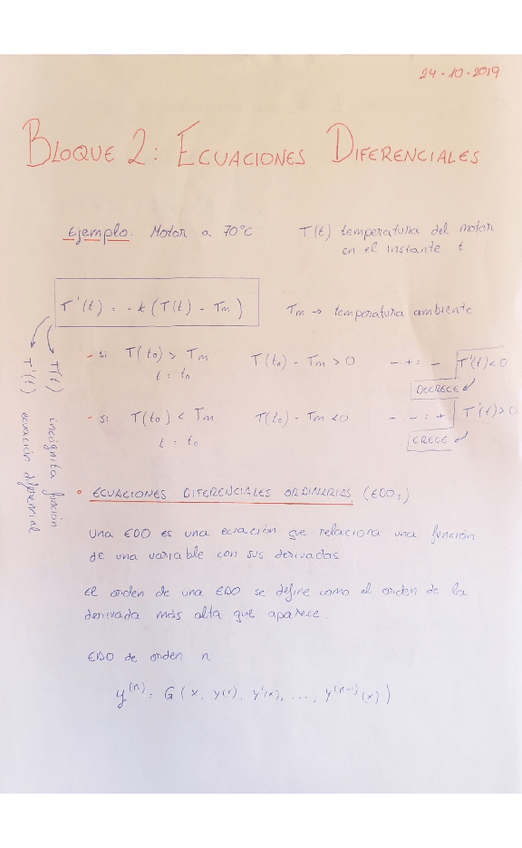 24-10-2019
BLOQUE 2: ECUACIONES DIFERENCIALES
Ejemplo: Motor a 70°C
T(t) temperatura del motor
en el instante t
T'(t) = -k (T(t) - Tm)
Tm → temperatura ambiente
- si T(t₀) > Tm T(t₀) - Tm > 0 - · + = - T'(t) < 0
t = t₀
DECRECE ✓
- si T(t₀) < Tm T(t₀) - Tm < 0 - · - = + T'(t) > 0
t = t₀
CRECE ✓
T(t) incógnita función
T'(t) ecuación diferencial
• ECUACIONES DIFERENCIALES ORDINARIAS (EDOs)
Una EDO es una ecuación que relaciona una función
de una variable con sus derivadas
El orden de una EDO se define como el orden de la
derivada más alta que aparece.
EDO de orden n
y⁽ⁿ⁾ = G(x, y(x), y'(x), ..., y⁽ⁿ⁻¹⁾(x))